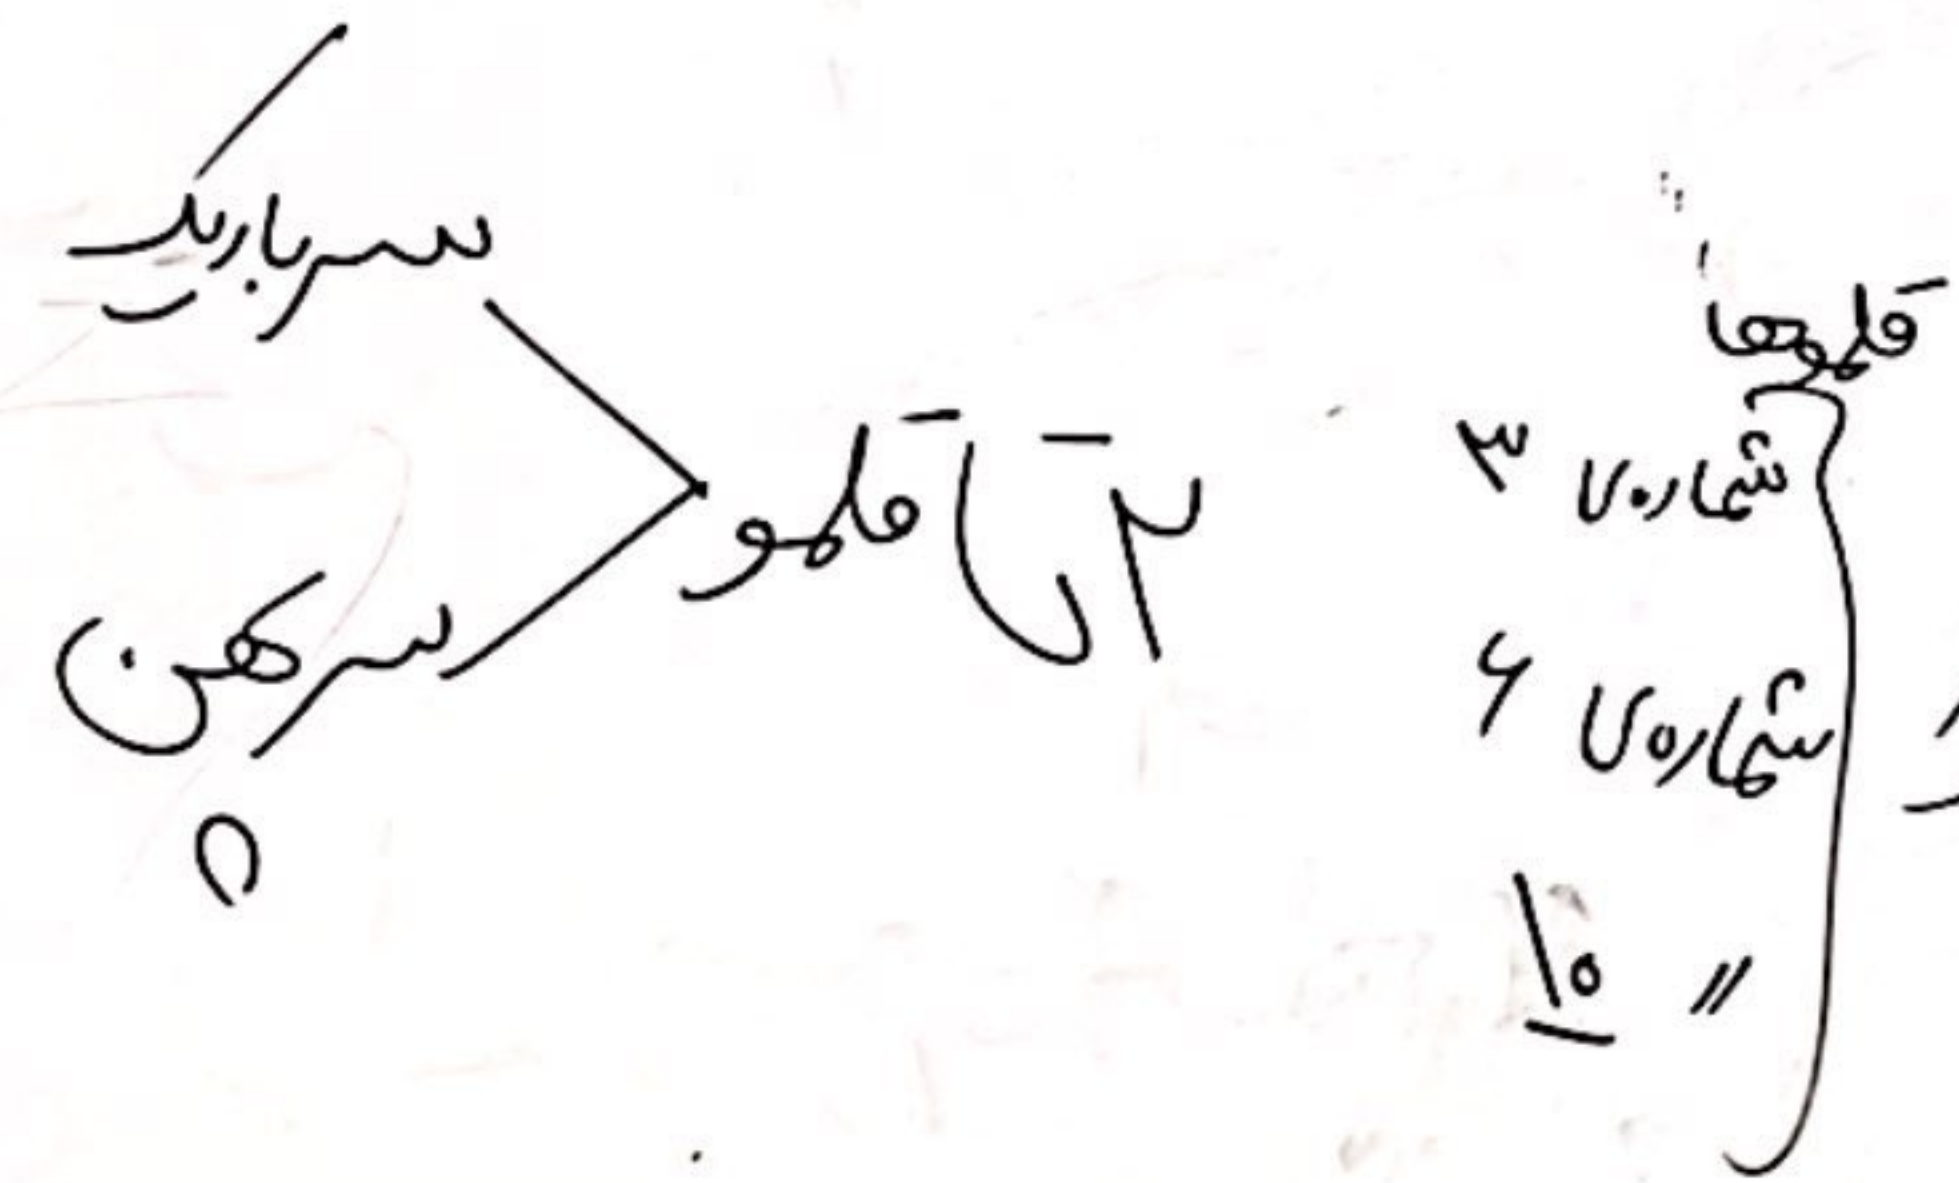 قلموها
شماره‌ی ۳
شماره‌ی ۶
〃 ۱۰
۲ تا قلمو
سر باریک
سر کهن